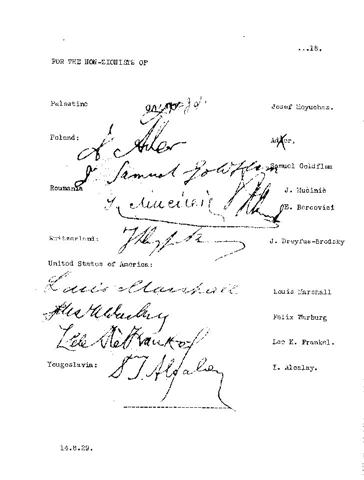 ...18.
FOR THE NON-ZIONISTS OF
Palestine Josef Meyuchas.
Poland: A. Adler Adler.
Dr Samuel Goldflam Samuel Goldflam
Roumania J. Mucinic J. Mučinič
E. Bercovici
Switzerland: J. Dreyfus-Brodsky
United States of America:
Louis Marshall Louis Marshall
Felix Warburg Felix Warburg
Lee K. Frankel Lee K. Frankel.
Yougoslavia: D I Alcalay I. Alcalay.
14.8.29.